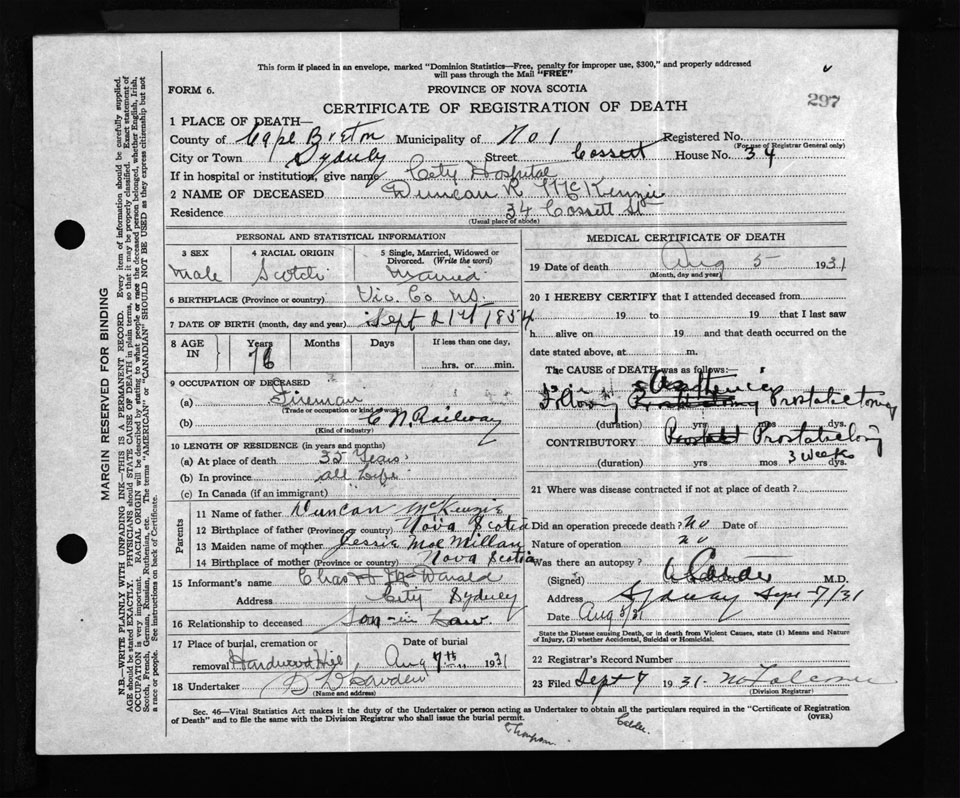 This form if placed in an envelope, marked "Dominion Statistics—Free, penalty for improper use, $300," and properly addressed
will pass through the Mail "FREE"
297
FORM 6.
PROVINCE OF NOVA SCOTIA
CERTIFICATE OF REGISTRATION OF DEATH
1 PLACE OF DEATH—
County of Cape Breton Municipality of No 1 Registered No.
(For use of Registrar General only)
City or Town Sydney Street Cossett House No. 34
If in hospital or institution, give name City Hospital
2 NAME OF DECEASED Duncan R McKenzie
Residence 34 Cossett St
(Usual place of abode)
PERSONAL AND STATISTICAL INFORMATION
3 SEX Male
4 RACIAL ORIGIN Scotch
5 Single, Married, Widowed or
Divorced. (Write the word)
Married
6 BIRTHPLACE (Province or country) Vic. Co. NS.
7 DATE OF BIRTH (month, day and year) Sept 21st 1854
8 AGE IN Years Months Days If less than one day,
76 hrs. or min.
9 OCCUPATION OF DECEASED
(a) Fireman
(Trade or occupation or kind of work)
(b) C N. Railway
(Kind of industry)
10 LENGTH OF RESIDENCE (in years and months)
(a) At place of death 35 Years
(b) In province all Life
(c) In Canada (if an immigrant)
Parents
11 Name of father Duncan McKenzie
12 Birthplace of father (Province or country) Nova Scotia
13 Maiden name of mother Jessie MacMillan
14 Birthplace of mother (Province or country) Nova Scotia
15 Informant's name Chas H McDonald
Address City Sydney
16 Relationship to deceased Son-in Law
17 Place of burial, cremation or Date of burial
removal Hardwood Hill, Aug 7th 1931
18 Undertaker
(Name and address)
MEDICAL CERTIFICATE OF DEATH
19 Date of death Aug 5 1931
(Month, day and year)
20 I HEREBY CERTIFY that I attended deceased from
19 to 19 that I last saw
h alive on 19 and that death occurred on the
date stated above, at m.
The CAUSE of DEATH was as follows:
Asthenia
Following Prostatectomy
(duration) yrs mos dys.
CONTRIBUTORY Prostatectomy
3 weeks
(duration) yrs mos dys.
21 Where was disease contracted if not at place of death?
Did an operation precede death? no Date of
Nature of operation no
Was there an autopsy?
(Signed) M.D.
Address Sydney Sept 7/31
Date Aug 5/31
State the Disease causing Death, or in death from Violent Causes, state (1) Means and Nature
of Injury, (2) whether Accidental, Suicidal or Homicidal.
22 Registrar's Record Number
23 Filed Sept 7 1931
(Division Registrar)
Sec. 46—Vital Statistics Act makes it the duty of the Undertaker or person acting as Undertaker to obtain all the particulars required in the "Certificate of Registration
of Death" and to file the same with the Division Registrar who shall issue the burial permit. (OVER)
Thompson. Calder.
MARGIN RESERVED FOR BINDING
N.B.—WRITE PLAINLY WITH UNFADING INK—THIS IS A PERMANENT RECORD. Every item of information should be carefully supplied.
AGE should be stated EXACTLY. PHYSICIANS should STATE CAUSE OF DEATH in plain terms, so that it may be properly classified. Exact statement of
OCCUPATION is very important. RACIAL ORIGIN will be described by stating to what people or race the deceased person belonged, whether English, Irish,
Scotch, French, German, Russian, Ruthenian, etc. The terms "AMERICAN" or "CANADIAN" SHOULD NOT BE USED as they express citizenship but not
a race or people. See instructions on back of Certificate.